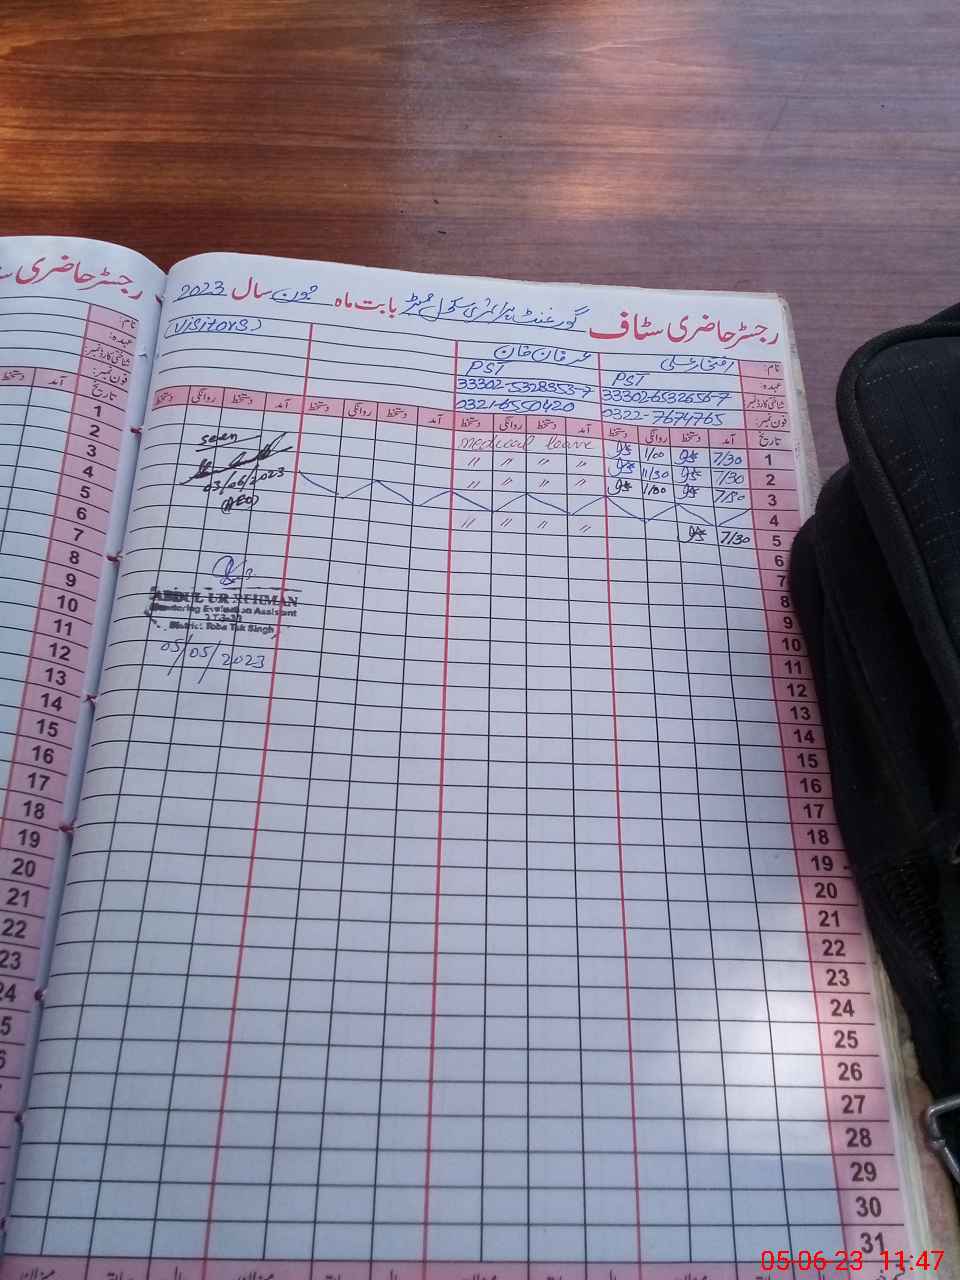 رجسٹر حاضری سٹاف گورنمنٹ پرائمری سکول بابت ماہ جون سال 2023
(Visitors)
نام: افتخار علی عرفان خان
عہدہ: PST PST
شناختی کارڈ نمبر: 33302-6532656-7 33302-5328353-7
فون نمبر: 0322-7674765 0321-6550420
تاریخ آمد دستخط روانگی دستخط آمد دستخط روانگی دستخط آمد دستخط روانگی دستخط آمد دستخط روانگی دستخط
1 7/30 1/00 medical leave
2 7/30 11/30 〃 〃 〃 〃
3 7/30 1/00 〃 〃 〃 〃
4
5 7/30 〃 〃 〃 〃
6
7
8
9
10
11
12
13
14
15
16
17
18
19
20
21
22
23
24
25
26
27
28
29
30
31
seen
03/06/2023
(AEO)
ABDUL UR REHMAN
Monitoring Evaluation Assistant
District Toba Tek Singh
05/05/2023
رجسٹر حاضری
نام:
عہدہ:
شناختی کارڈ نمبر:
فون نمبر:
تاریخ آمد دستخط
1
2
3
4
5
6
7
8
9
10
11
12
13
14
15
16
17
18
19
20
21
22
23
24
05-06-23 11:47